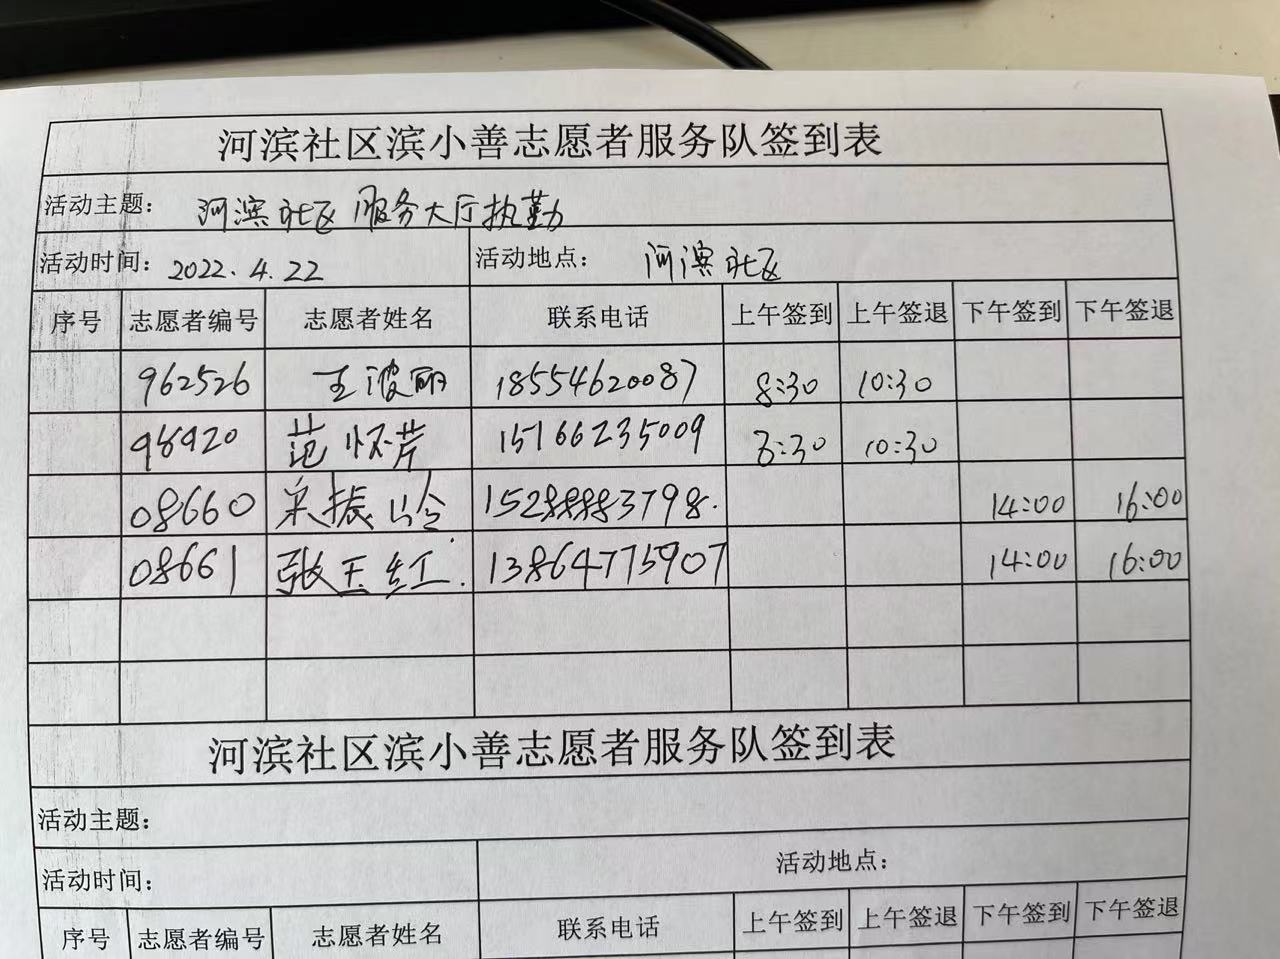 河滨社区滨小善志愿者服务队签到表
活动主题： 河滨社区服务大厅执勤
活动时间：2022.4.22 活动地点： 河滨社区
序号 志愿者编号 志愿者姓名 联系电话 上午签到 上午签退 下午签到 下午签退
962526 王波丽 18554620087 8:30 10:30
98920 范怀芹 15166235009 8:30 10:30
08660 宋振玲 15288883798. 14:00 16:00
08661 张玉红. 13864775907 14:00 16:00
河滨社区滨小善志愿者服务队签到表
活动主题：
活动时间： 活动地点：
序号 志愿者编号 志愿者姓名 联系电话 上午签到 上午签退 下午签到 下午签退